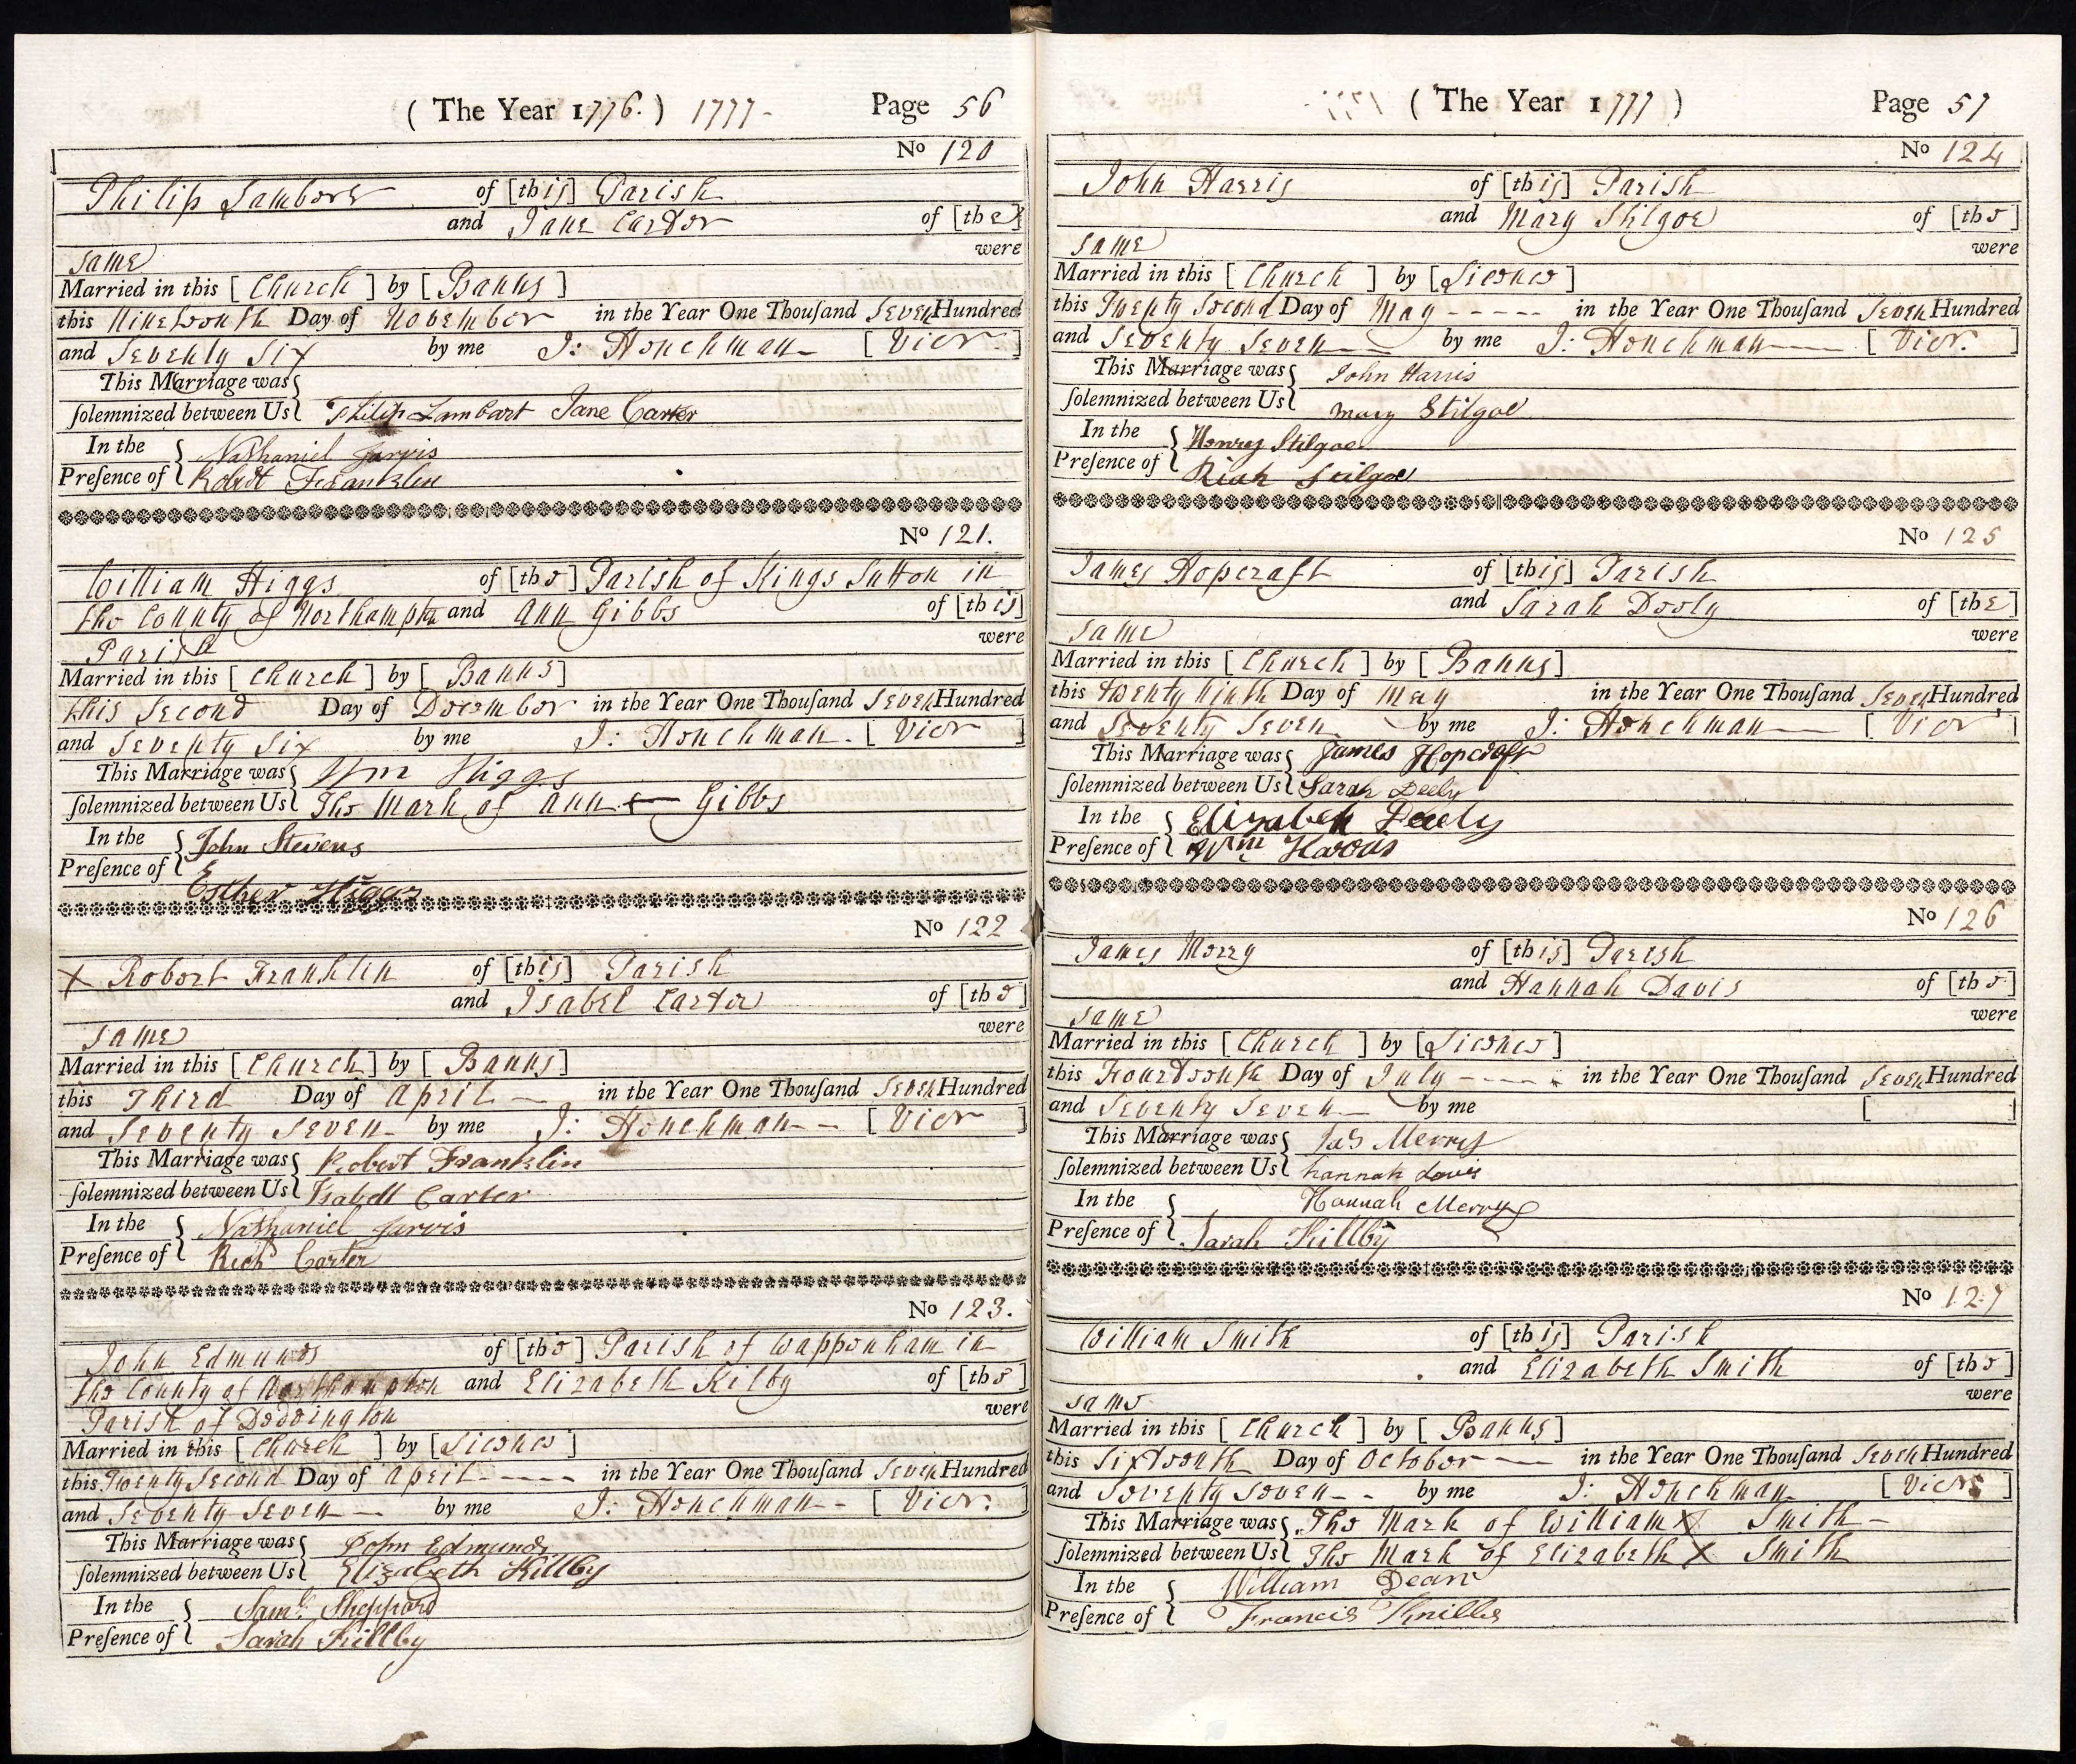 ( The Year 1776. ) 1777- Page 56
No 120
Philip Lambert of [this] Parish
and Jane Carter of [the]
same were
Married in this [ Church ] by [ Banns ]
this Nineteenth Day of November in the Year One Thousand Seven Hundred
and Seventy Six by me J: Honchman [ Vicr ]
This Marriage was
solemnized between Us Philip Lambart Jane Carter
In the Nathaniel Jarvis
Presence of Robert Franklin
No 121.
William Higgs of [the] Parish of Kings Sutton in
the County of Northampton and Ann Gibbs of [this]
Parish were
Married in this [ Church ] by [ Banns ]
this Second Day of December in the Year One Thousand Seven Hundred
and Seventy Six by me J: Honchman. [ Vicr ]
This Marriage was Wm Higgs
solemnized between Us The Mark of Ann + Gibbs
In the John Stevens
Presence of E
Esther Higgs
No 122
X Robert Franklin of [this] Parish
and Isabel Carter of [the]
same were
Married in this [ Church ] by [ Banns ]
this Third Day of April in the Year One Thousand Seven Hundred
and Seventy Seven by me J: Honchman [ Vicr ]
This Marriage was Robert Franklin
solemnized between Us Isabell Carter
In the Nathaniel Jarvis
Presence of Rich Carter
No 123.
John Edmunds of [the] Parish of Wappenham in
the County of Northampton and Elizabeth Kilby of [the]
Parish of Deddington were
Married in this [ Church ] by [ Licence ]
this Twenty Second Day of April in the Year One Thousand Seven Hundred
and Seventy Seven by me J: Honchman [ Vicr. ]
This Marriage was John Edmunds
solemnized between Us Elizabeth Killby
In the Saml Sheppard
Presence of Sarah Killby
( The Year 1777 ) Page 57
No 124
John Harris of [this] Parish
and Mary Stilgoe of [the]
same were
Married in this [ Church ] by [ Licence ]
this Twenty Second Day of May in the Year One Thousand Seven Hundred
and Seventy Seven by me J: Honchman [ Vicr. ]
This Marriage was John Harris
solemnized between Us mary Stilgoe
In the Henry Stilgoe
Presence of Rich Stilgoe
No 125
James Hopcraft of [this] Parish
and Sarah Deely of [the]
same were
Married in this [ Church ] by [ Banns ]
this Twenty Ninth Day of May in the Year One Thousand Seven Hundred
and Seventy Seven by me J: Honchman [ Vicr ]
This Marriage was James Hopcraft
solemnized between Us Sarah Deely
In the Elizabeth Deely
Presence of Wm
No 126
James Merry of [this] Parish
and Hannah Davis of [the]
same were
Married in this [ Church ] by [ Licence ]
this Fourteenth Day of July in the Year One Thousand Seven Hundred
and Seventy Seven by me [ ]
This Marriage was Jas Merry
solemnized between Us hannah davis
In the Hannah Merry
Presence of Sarah Killby
No 127
William Smith of [this] Parish
and Elizabeth Smith of [the]
same were
Married in this [ Church ] by [ Banns ]
this Sixteenth Day of October in the Year One Thousand Seven Hundred
and Seventy Seven by me J: Honchman [ Vicr ]
This Marriage was The Mark of William X Smith
solemnized between Us The Mark of Elizabeth X Smith
In the William Dean
Presence of Francis Knibbs